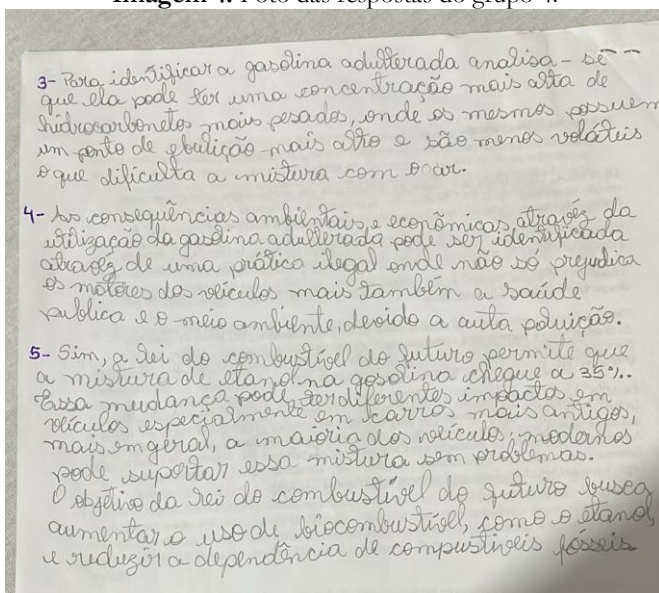 Imagem 4: Foto das respostas do grupo 4.
3- Para identificar a gasolina adulterada analisa-se
que ela pode ter uma concentração mais alta de
hidrocarbonetos mais pesados, onde os mesmos possuem
um ponto de ebulição mais alto e são menos voláteis
o que dificulta a mistura com o ar.
4- As consequências ambientais, e econômicas atravéz da
utilização da gasolina adulterada pode ser identificada
atravéz de uma prática ilegal onde não só prejudica
os motores dos veículos mais também a saúde
publica e o meio ambiente, devido a auta poluição.
5- Sim, a Lei do combustível do futuro permite que
a mistura de etanol na gasolina chegue a 35%.
Essa mudança pode ter diferentes impactos em
veículos especialmente em carros mais antigos,
mais em geral, a maioria dos veículos, modernos
pode suportar essa mistura sem problemas.
O objetivo da Lei do combustível do futuro busca
aumentar o uso de biocombustível, como o etanol,
e reduzir a dependência de compustiveis fósseis